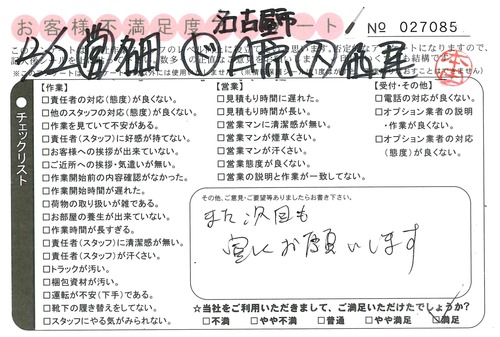 お客様不満足度 ート
名古屋市
No 027085
チェックリスト
【作業】
□責任者の対応(態度)が良くない。
□他のスタッフの対応(態度)が良くない。
□作業を見ていて不安がある。
□責任者(スタッフ)に好感が持てない。
□お客様への挨拶が出来ていない。
□ご近所への挨拶・気遣いが無い。
□作業開始前の内容確認がなかった。
□作業開始時間が遅れた。
□荷物の取り扱いが雑である。
□お部屋の養生が出来ていない。
□作業時間が長すぎる。
□責任者(スタッフ)に清潔感が無い。
□責任者(スタッフ)が汗くさい。
□トラックが汚い。
□梱包資材が汚い。
□運転が不安(下手)である。
□靴下の履き替えをしてない。
□スタッフにやる気がみられない。
【営業】
□見積もり時間に遅れた。
□見積もり時間が長い。
□営業マンに清潔感が無い。
□営業マンが煙草くさい。
□営業マンが汗くさい。
□営業態度が良くない。
□営業の説明と作業が一致してない。
【受付・その他】
□電話の対応が良くない。
□オプション業者の説明
・作業が良くない。
□オプション業者の対応
(態度)が良くない。
その他、ご意見・ご要望等ありましたらお書き下さい。
また次回も
宜しくお願いします
☆当社をご利用いただきまして、ご満足いただけたでしょうか?
□不満 □やや不満 □普通 □やや満足 □満足